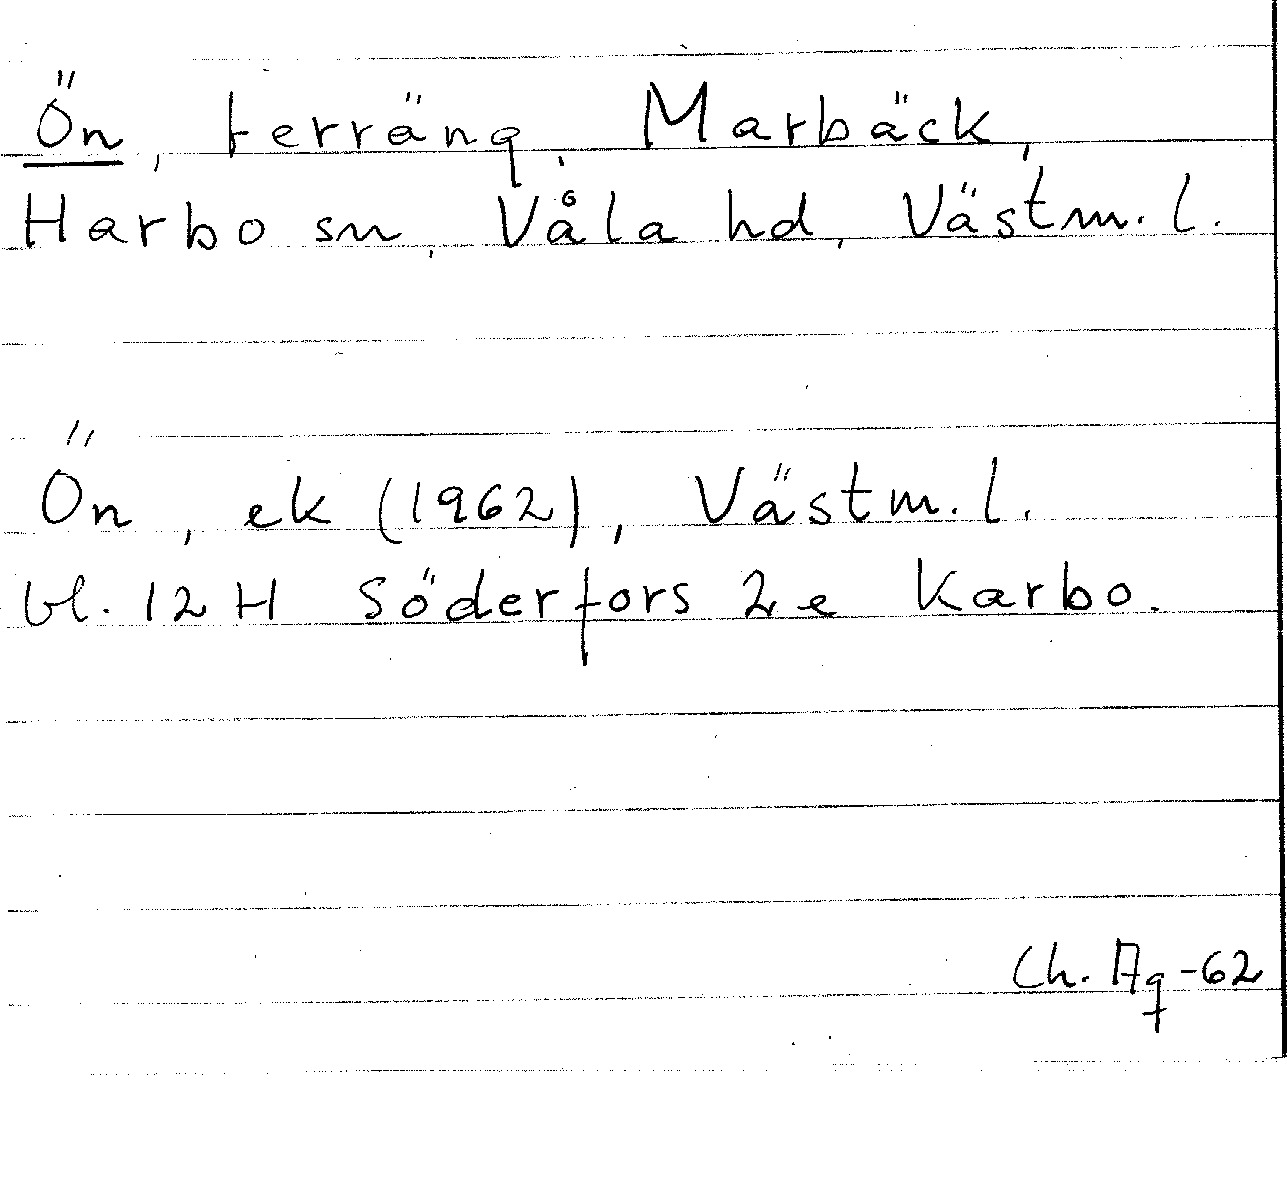 Ön, terräng, Marbäck,
Harbo sn, Våla hd, Västm. l.
Ön, ek (1962), Västm. l.
bl. 12 H Söderfors 2e Karbo.
Ch. Aq -62